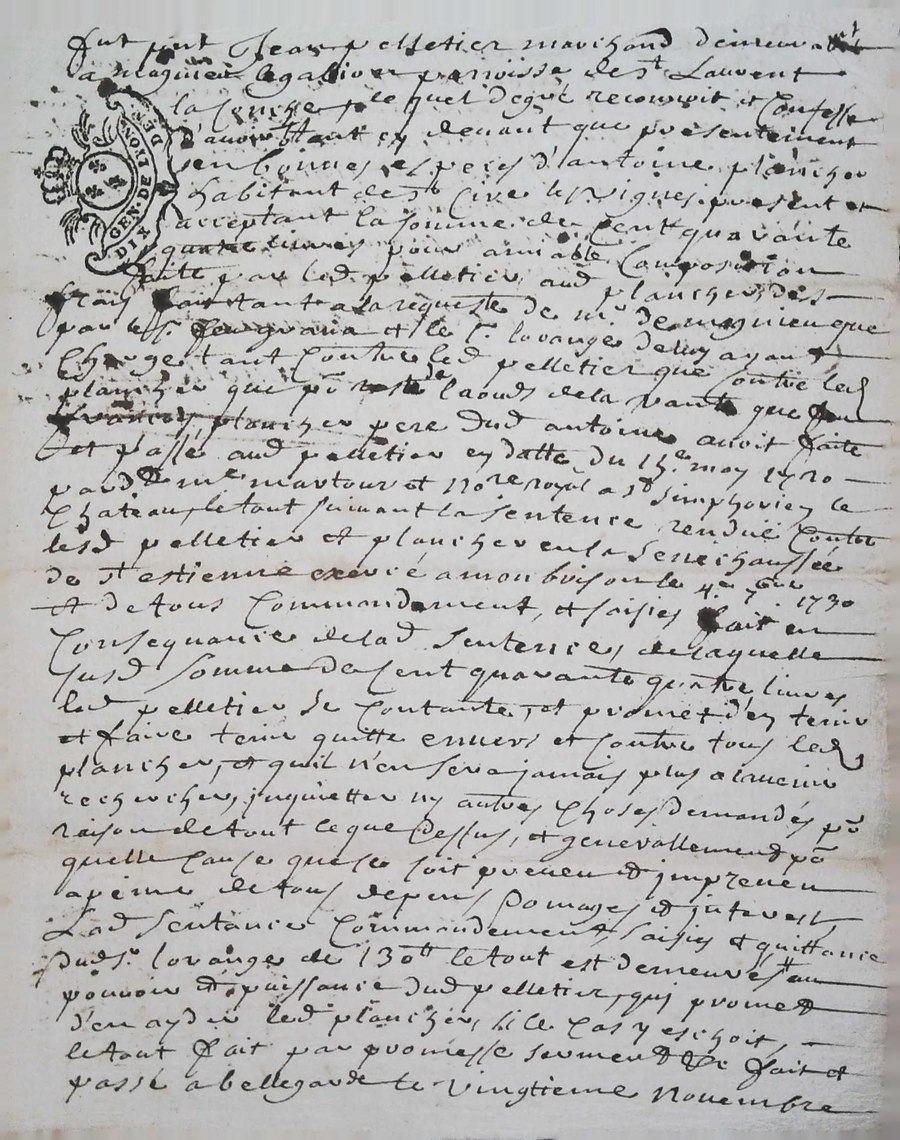 fut pnt Jean pelletier marchand demeurant
a magnieu legabion parroisse de st Laurent
la Conche, lequel degré reconnoit et Confesse
d'avoir tant cy devant que presentement
en bonnes especes d'antoine plancher
habitant de st Cire les vignes present et
acceptant la somme de Cent quarante
quatre livres pour amiable Composition
faite par led pelletier aud plancher, des
frais fait tant a la requeste de mr de magnieu que
par le sr et le sr lorange de luy ayant
Charge tant Contre led pelletier que Contre led
plancher que po reste de laods de la vante que feu
francois plancher pere dud antoine avoit faite
et passé aud pelletier en datte du 15e may 1720
pard me martour et nore royal a st Simphorien le
Chateau, le tout suivant la sentence rendue Contre
lesd pelletier et plancher en la Senechaussée
de st estienne exercé a monbrison le 4e 7bre 1730
et de tous Commandement, et saisies fait en
Consequance de lad sentence, de laquelle
susd somme de Cent quarante quatre livres
led pelletier se Contante, et promet d'en tenir
et faire tenir quitte envers et Contre tous led
plancher, et qu'il n'en sera jamais plus a l'avenir
recherche, inquietter ny autres Choses demandés po
raison de tout ce que dessus, et generallement po
quelle Cause que ce soit preveu et impreveu
a peine de tous depens domages et interest
Lad sentance Commandement, saisies et quittance
dud sr lorange de 130tt le tout est demeuré au
pouvoir et puissance dud pelletier, qui promet
d'en ayder led plancher, si le Cas y eschoit,
le tout fait par promesse serment &c fait et
passé a bellegarde le vingtieme novembre
GEN·DE·LYON·
DIX DEN